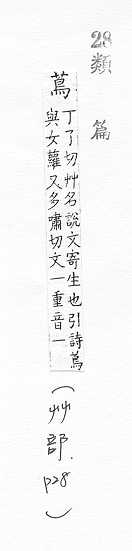 28
類篇
蔦 丁了切艸名說文寄生也引詩蔦
與女蘿又多嘯切文一重音一
(艸部. p28)